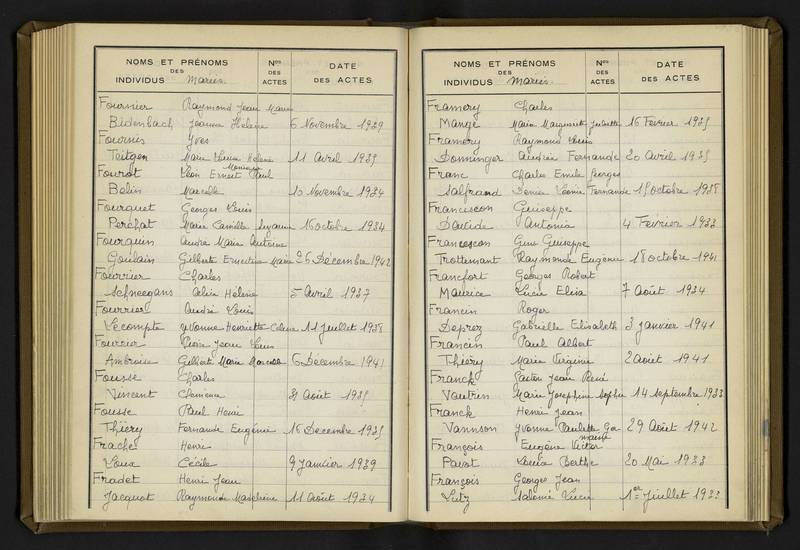 NOMS ET PRÉNOMS Nos DATE
DES DES
INDIVIDUS Mariés ACTES DES ACTES
Fournier Raymond Jean Marie
Bidenbach Jeanne Hélène 6 Novembre 1939
Fournis Yves
Teitgen Marie Hélène 11 Avril 1935
Monique
Fourot Léon Ernest Paul
Belin Marcelle 10 Novembre 1934
Fourquet Georges Louis
Perchat Marie Camille Suzanne 16 octobre 1934
Fourquin André Marie Antoine
Goulain Gilberte Ernestine Marie 26 Décembre 1942
Fourrier Charles
Schneegans Célie Hélène 5 avril 1937
Fourrier André Louis
Lecompte Yvonne Henriette 11 Juillet 1938
Fourrier Pierre Jean Louis
Ambroise Gilberte Marie Marcelle 6 Décembre 1941
Fousse Charles
Vincent Clémence Août 1935
Fousse Paul Henri
Thiéry Fernande Eugénie 16 Decembre 1935
Frache Henri
Loux Cécile 9 Janvier 1939
Fradet Henri Jean
Jacquot Raymonde 11 Août 1934
NOMS ET PRÉNOMS Nos DATE
DES DES
INDIVIDUS Mariés ACTES DES ACTES
Framery Charles
Mange Marie Marguerite Juliette 16 Février 1935
Framery Raymond Louis
Donninger Andrée Fernande 20 Avril 1935
Franc Charles Emile Georges
Salfrand Denise Fernande 15 octobre 1938
Francescon Guiseppe
Davide Antonia 4 Février 1933
Francescon Gino Guiseppe
Trottenant Raymonde Eugénie 18 octobre 1941
Francfort Georges Robert
Maurice Lucie Elisa 7 Août 1934
Francin Roger
Deprez Gabrielle Elisabeth 3 Janvier 1941
Francin Paul Albert
Thiéry Marie Virginie 2 août 1941
Franck Gaston Jean René
Vautrin Marie Joséphine Sophie 14 septembre 1933
Franck Henri Jean
Vannson Yvonne Paulette 29 Août 1942
François Eugène Victor
Payot Louise Berthe 20 Mai 1933
François Georges Jean
Lutz Salomé Lucie 1er Juillet 1933